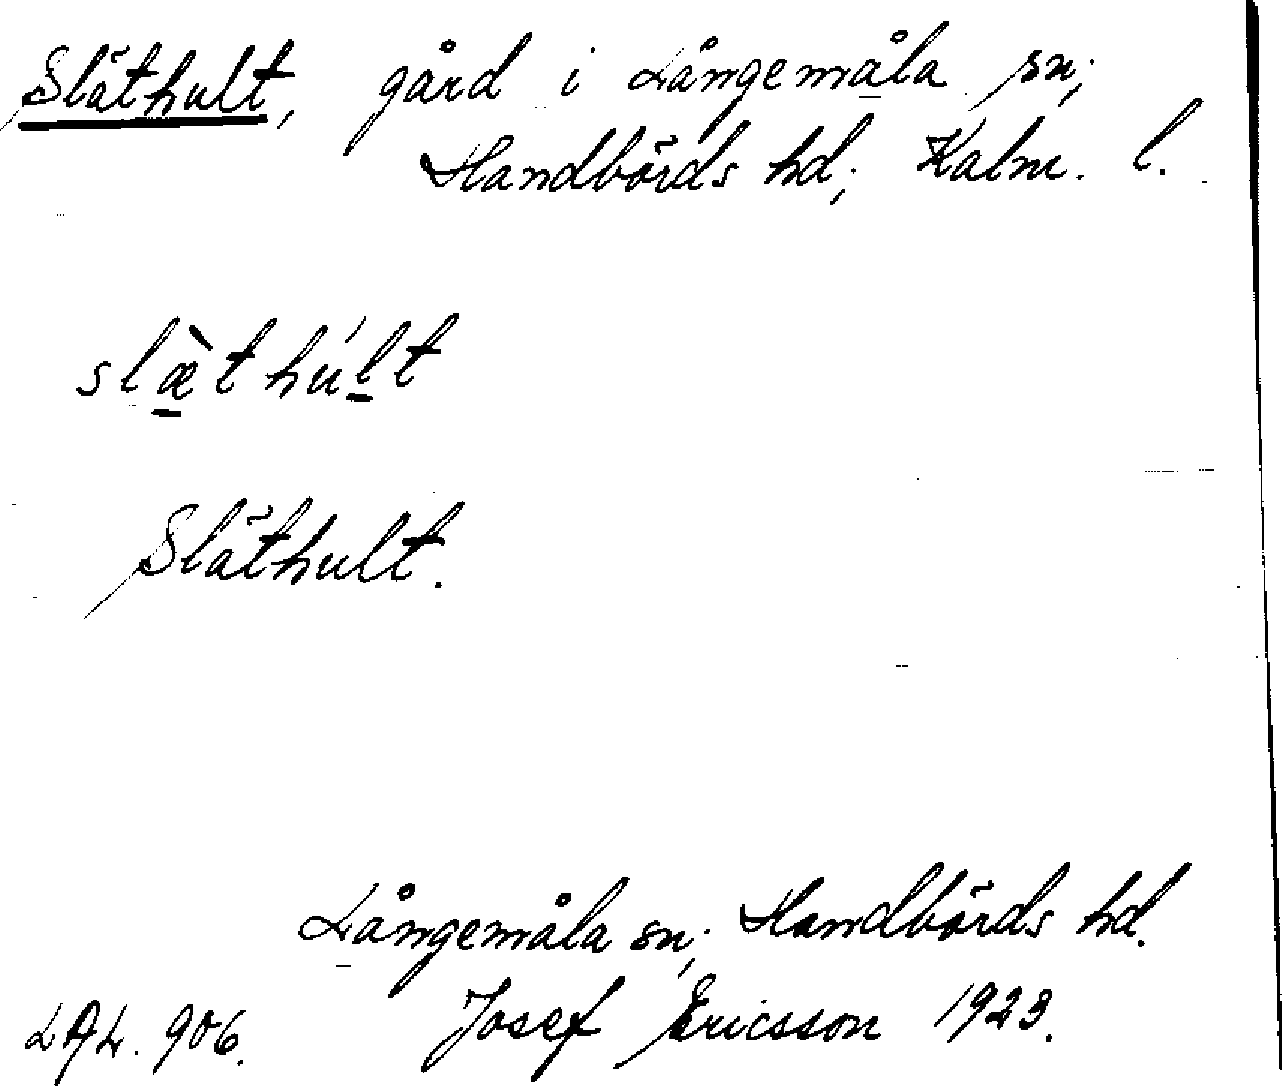 Släthult, gård i Långemåla sn;
Handbörds hd; Kalm. l.
slæ̀thúlt
Släthult.
Långemåla sn; Handbörds hd.
LAL. 906. Josef Ericsson 1923.